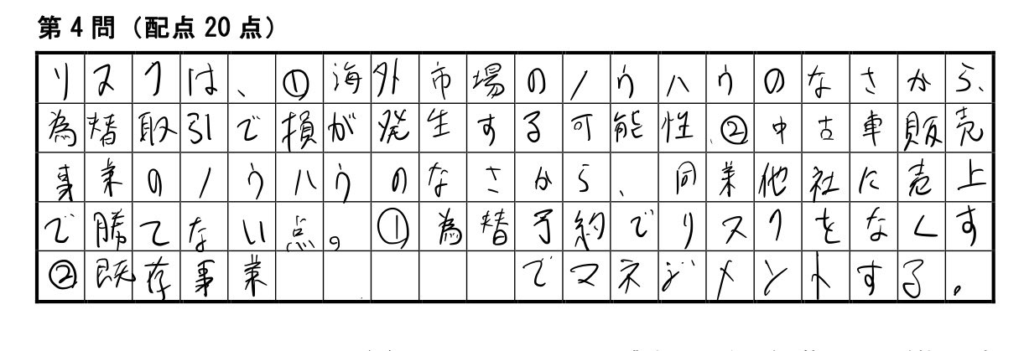 第4問（配点20点）
リスクは、①海外市場のノウハウのなさから、
為替取引で損が発生する可能性、②中古車販売
事業のノウハウのなさから、同業他社に売上
で勝てない点。①為替予約でリスクをなくす
②既存事業　　　　　でマネジメントする。